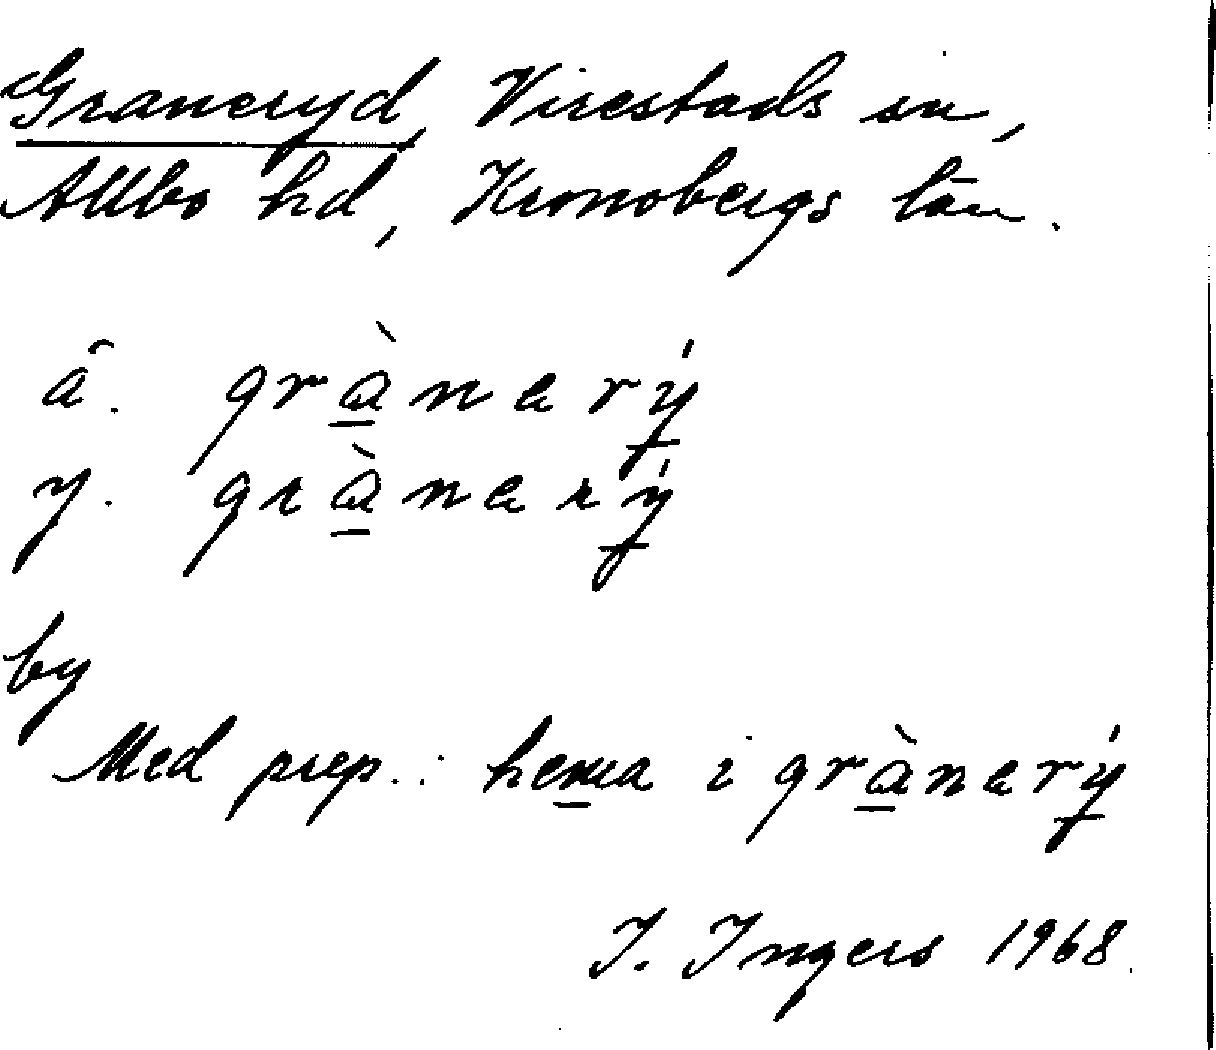 Graneryd, Virestads sn,
Allbo hd, Kronobergs län.
ä. grà̱nərý̱
y. grà̱nərý̱
by
Med prep.: hem̱a i grà̱nərý̱
I. Ingers 1968.